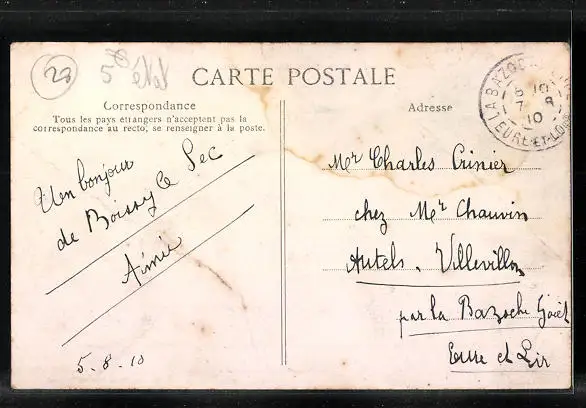 28
5 état
CARTE POSTALE
Correspondance
Tous les pays étrangers n'acceptent pas la
correspondance au recto, se renseigner à la poste.
Un bonjour
de Boissy le Sec
Aimée
5-8-10
Adresse
LA BAZOCHE
10
7 8
10
EURE-ET-LOIR
Mr Charles Crinier
chez Mr Chauvin
Autels. Villevillon
par la Bazoche Gouët
Eure et Loir